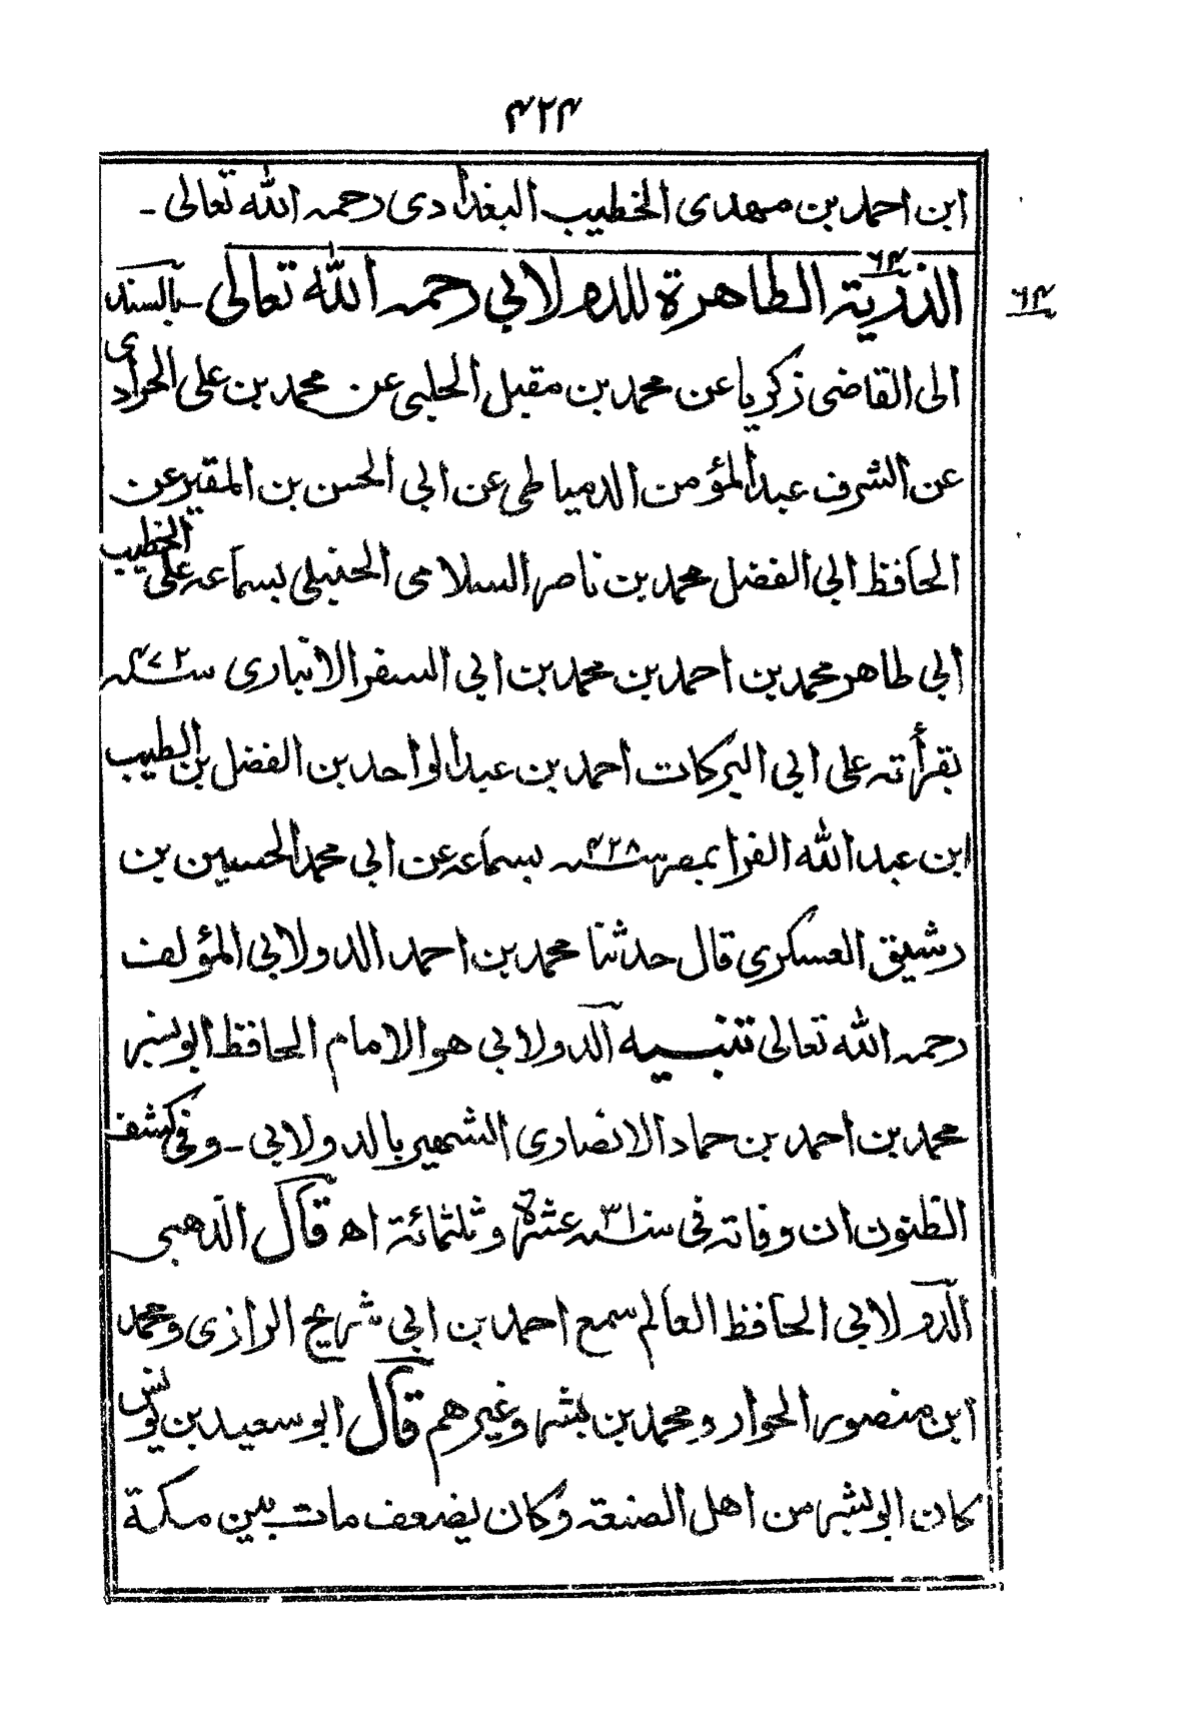 ۴۲۴
ابن احمد بن مهدى الخطيب البغدادى رحمه الله تعالى -
۶۴
الذرية الطاهرة للدولابي رحمه الله تعالى - بالسند
۶۴
الى القاضى زكريا عن محمد بن مقبل الحلبى عن محمد بن على الحراوى
عن الشرف عبد المؤمن الدمياطى عن ابى الحسن بن المقير عن
الحافظ ابى الفضل محمد بن ناصر السلامى الحنبلى بسماعه على الخطيب
ابى طاهر محمد بن احمد بن محمد بن ابى السفر الانبارى سنة ۴۷۲
بقرأته على ابى البركات احمد بن عبد الواحد بن الفضل بن الطيب
ابن عبد الله الفرا بمصر سنة ۴۲۸ بسماعه عن ابى محمد الحسين بن
رشيق العسكرى قال حدثنا محمد بن احمد الدولابى المؤلف
رحمه الله تعالى تنبيه الدولابى هو الامام الحافظ ابو بشر
محمد بن احمد بن حماد الانصارى الشهير بالدولابى - وفى كشف
الظنون ان وفاته فى سنة ۳۱۰ عشرة وثلثمائة اه قال الذهبى
الدولابى الحافظ العالم سمع احمد بن ابى شريح الرازى ومحمد
ابن منصور الجواز ومحمد بن بشر وغيرهم قال ابو سعيد بن يونس
كان ابو بشر من اهل الصنعة وكان يضعف مات بين مكة